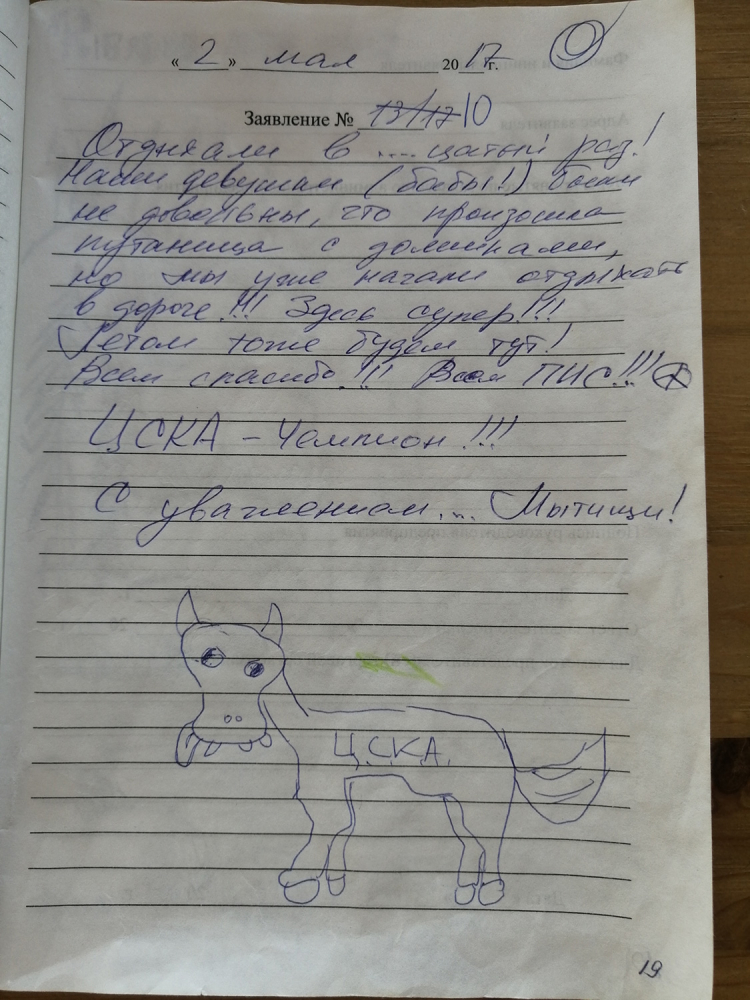 « 2 » мая 2017 г.
Заявление № 13/17 10
Отдыхали в .... цатый раз!
Наши девушки (бабы!) были
не довольны, что произошла
путаница с домиками,
но мы уже начали отдыхать
в дороге!!! Здесь супер!!!
Летом тоже будем тут!
Всем спасибо!!! Всем ПИС!!!
ЦСКА – Чемпион!!!
С уважением... Мытищи!
Ц.С.К.А.
19